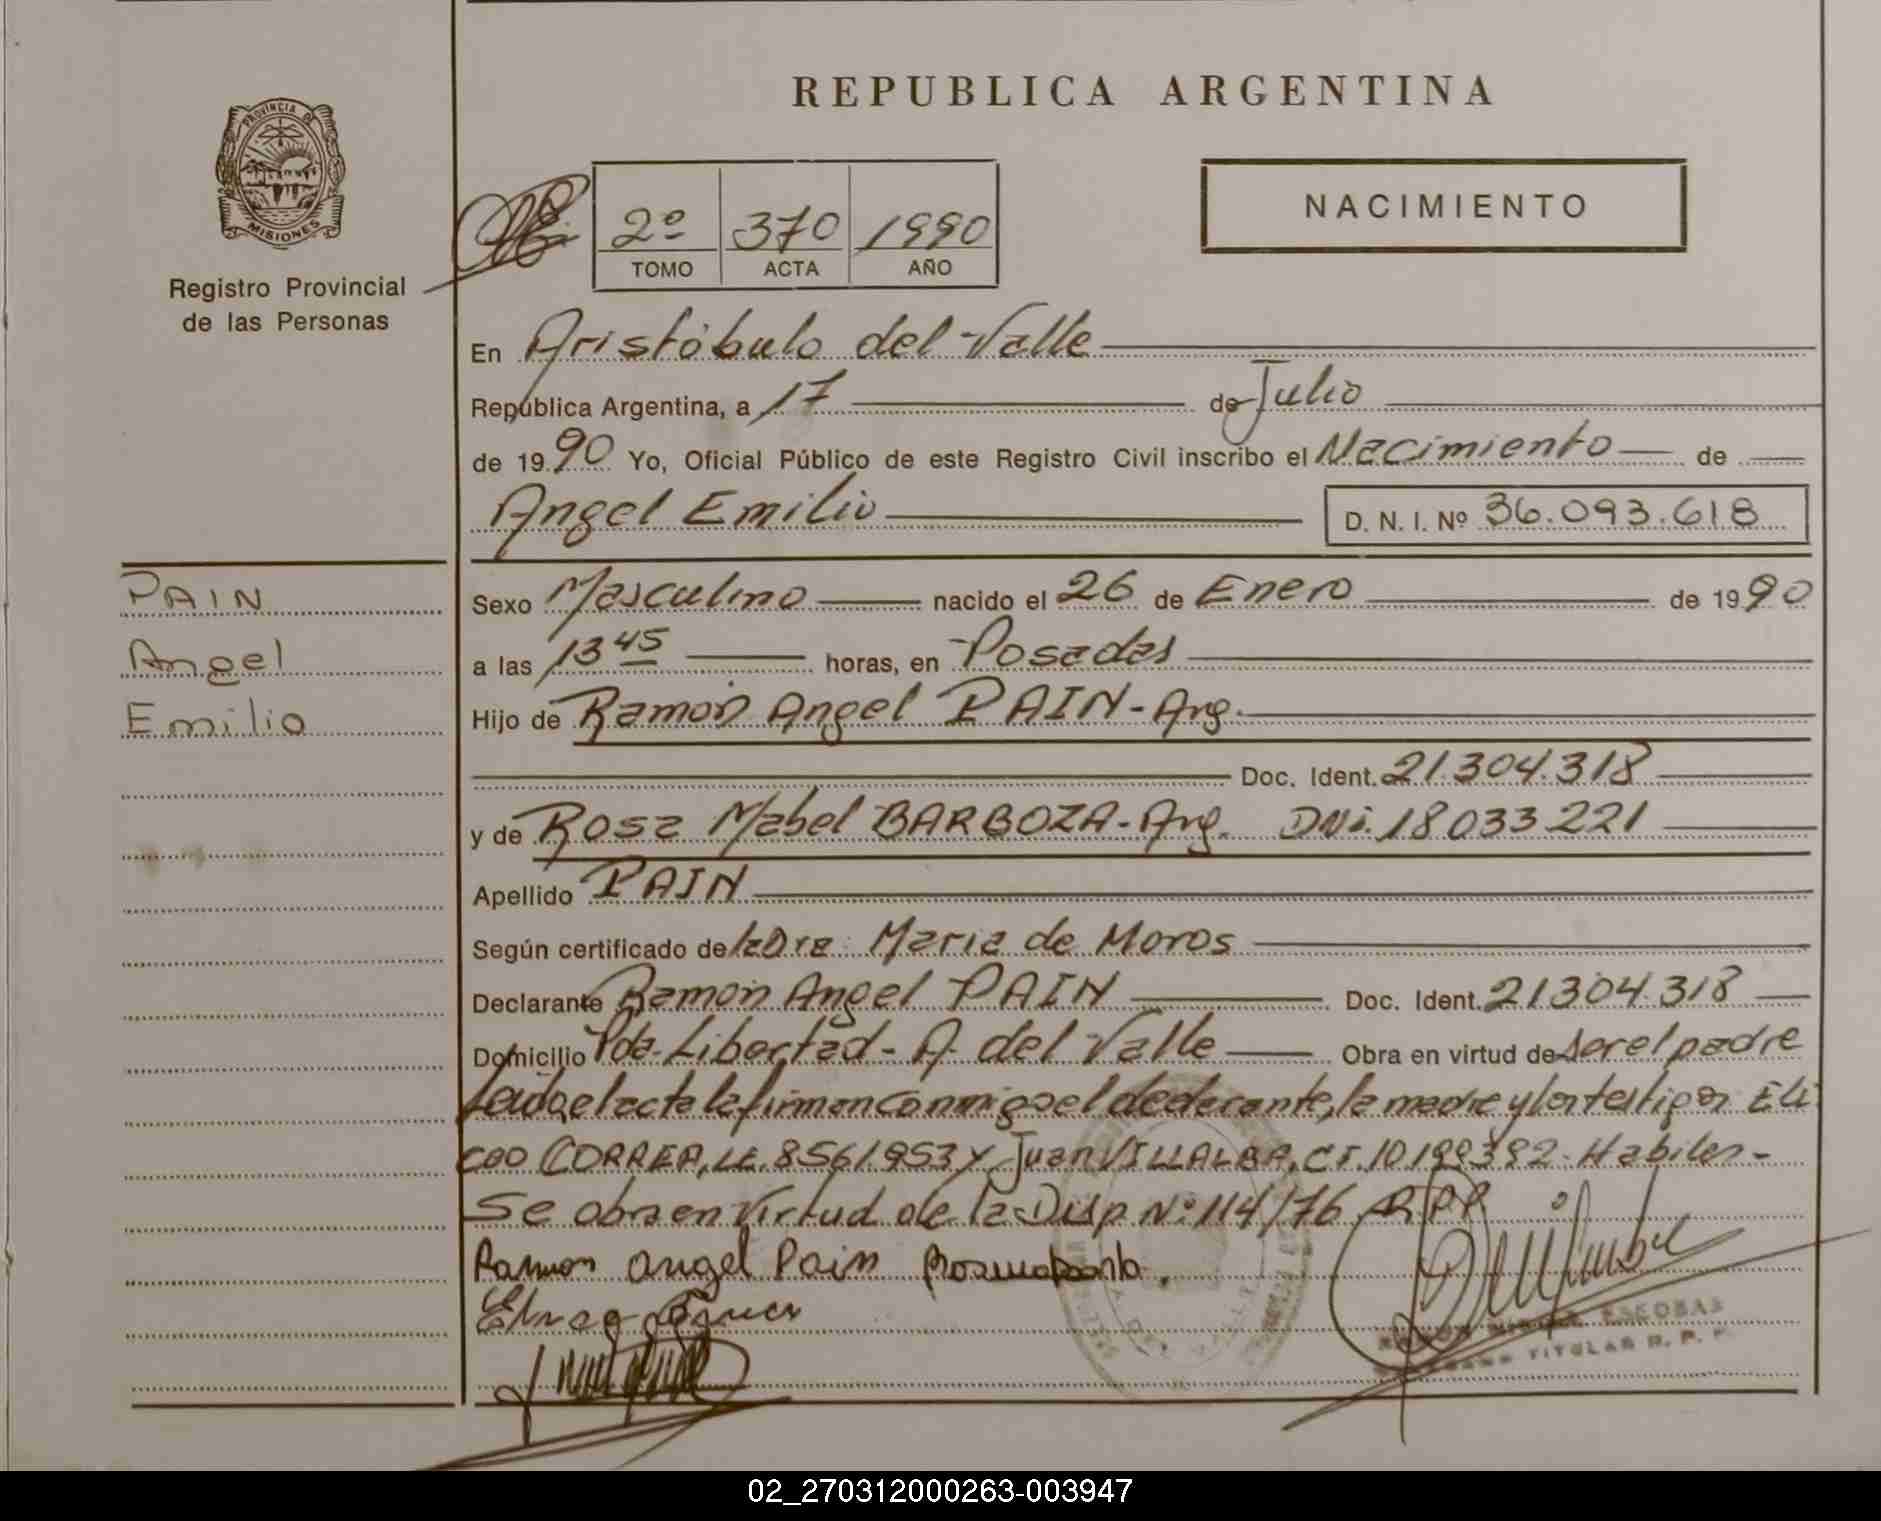 PROVINCIA DE
MISIONES
Registro Provincial
de las Personas
PAIN
Angel
Emilio
REPUBLICA ARGENTINA
2º 370 1990
TOMO ACTA AÑO
NACIMIENTO
En Aristóbulo del Valle
República Argentina, a 17 de Julio
de 1990 Yo, Oficial Público de este Registro Civil inscribo el Nacimiento de
Angel Emilio D. N. I. Nº 36.093.618
Sexo Masculino nacido el 26 de Enero de 1990
a las 13 45 horas, en Posadas
Hijo de Ramón Angel PAIN - Arg.
Doc. Ident. 21.304.318
y de Rosa Mabel BARBOZA - Arg. DNi. 18033221
Apellido PAIN
Según certificado de la Dra. Maria de Moros
Declarante Ramón Angel PAIN Doc. Ident. 21304.318
Domicilio Pda. Libertad - A. del Valle Obra en virtud de ser el padre
Leida el acta la firman conmigo el declarante, la madre y los testigos Eli
CORREA, LE. 8561953 y Juan VILLALBA, C.I. Habiles -
Se obra en virtud de la Disp Nº 114/76 R.P.P.
Ramon angel Pain
ESCOBAR
TITULAR R. P. P.
02_270312000263-003947